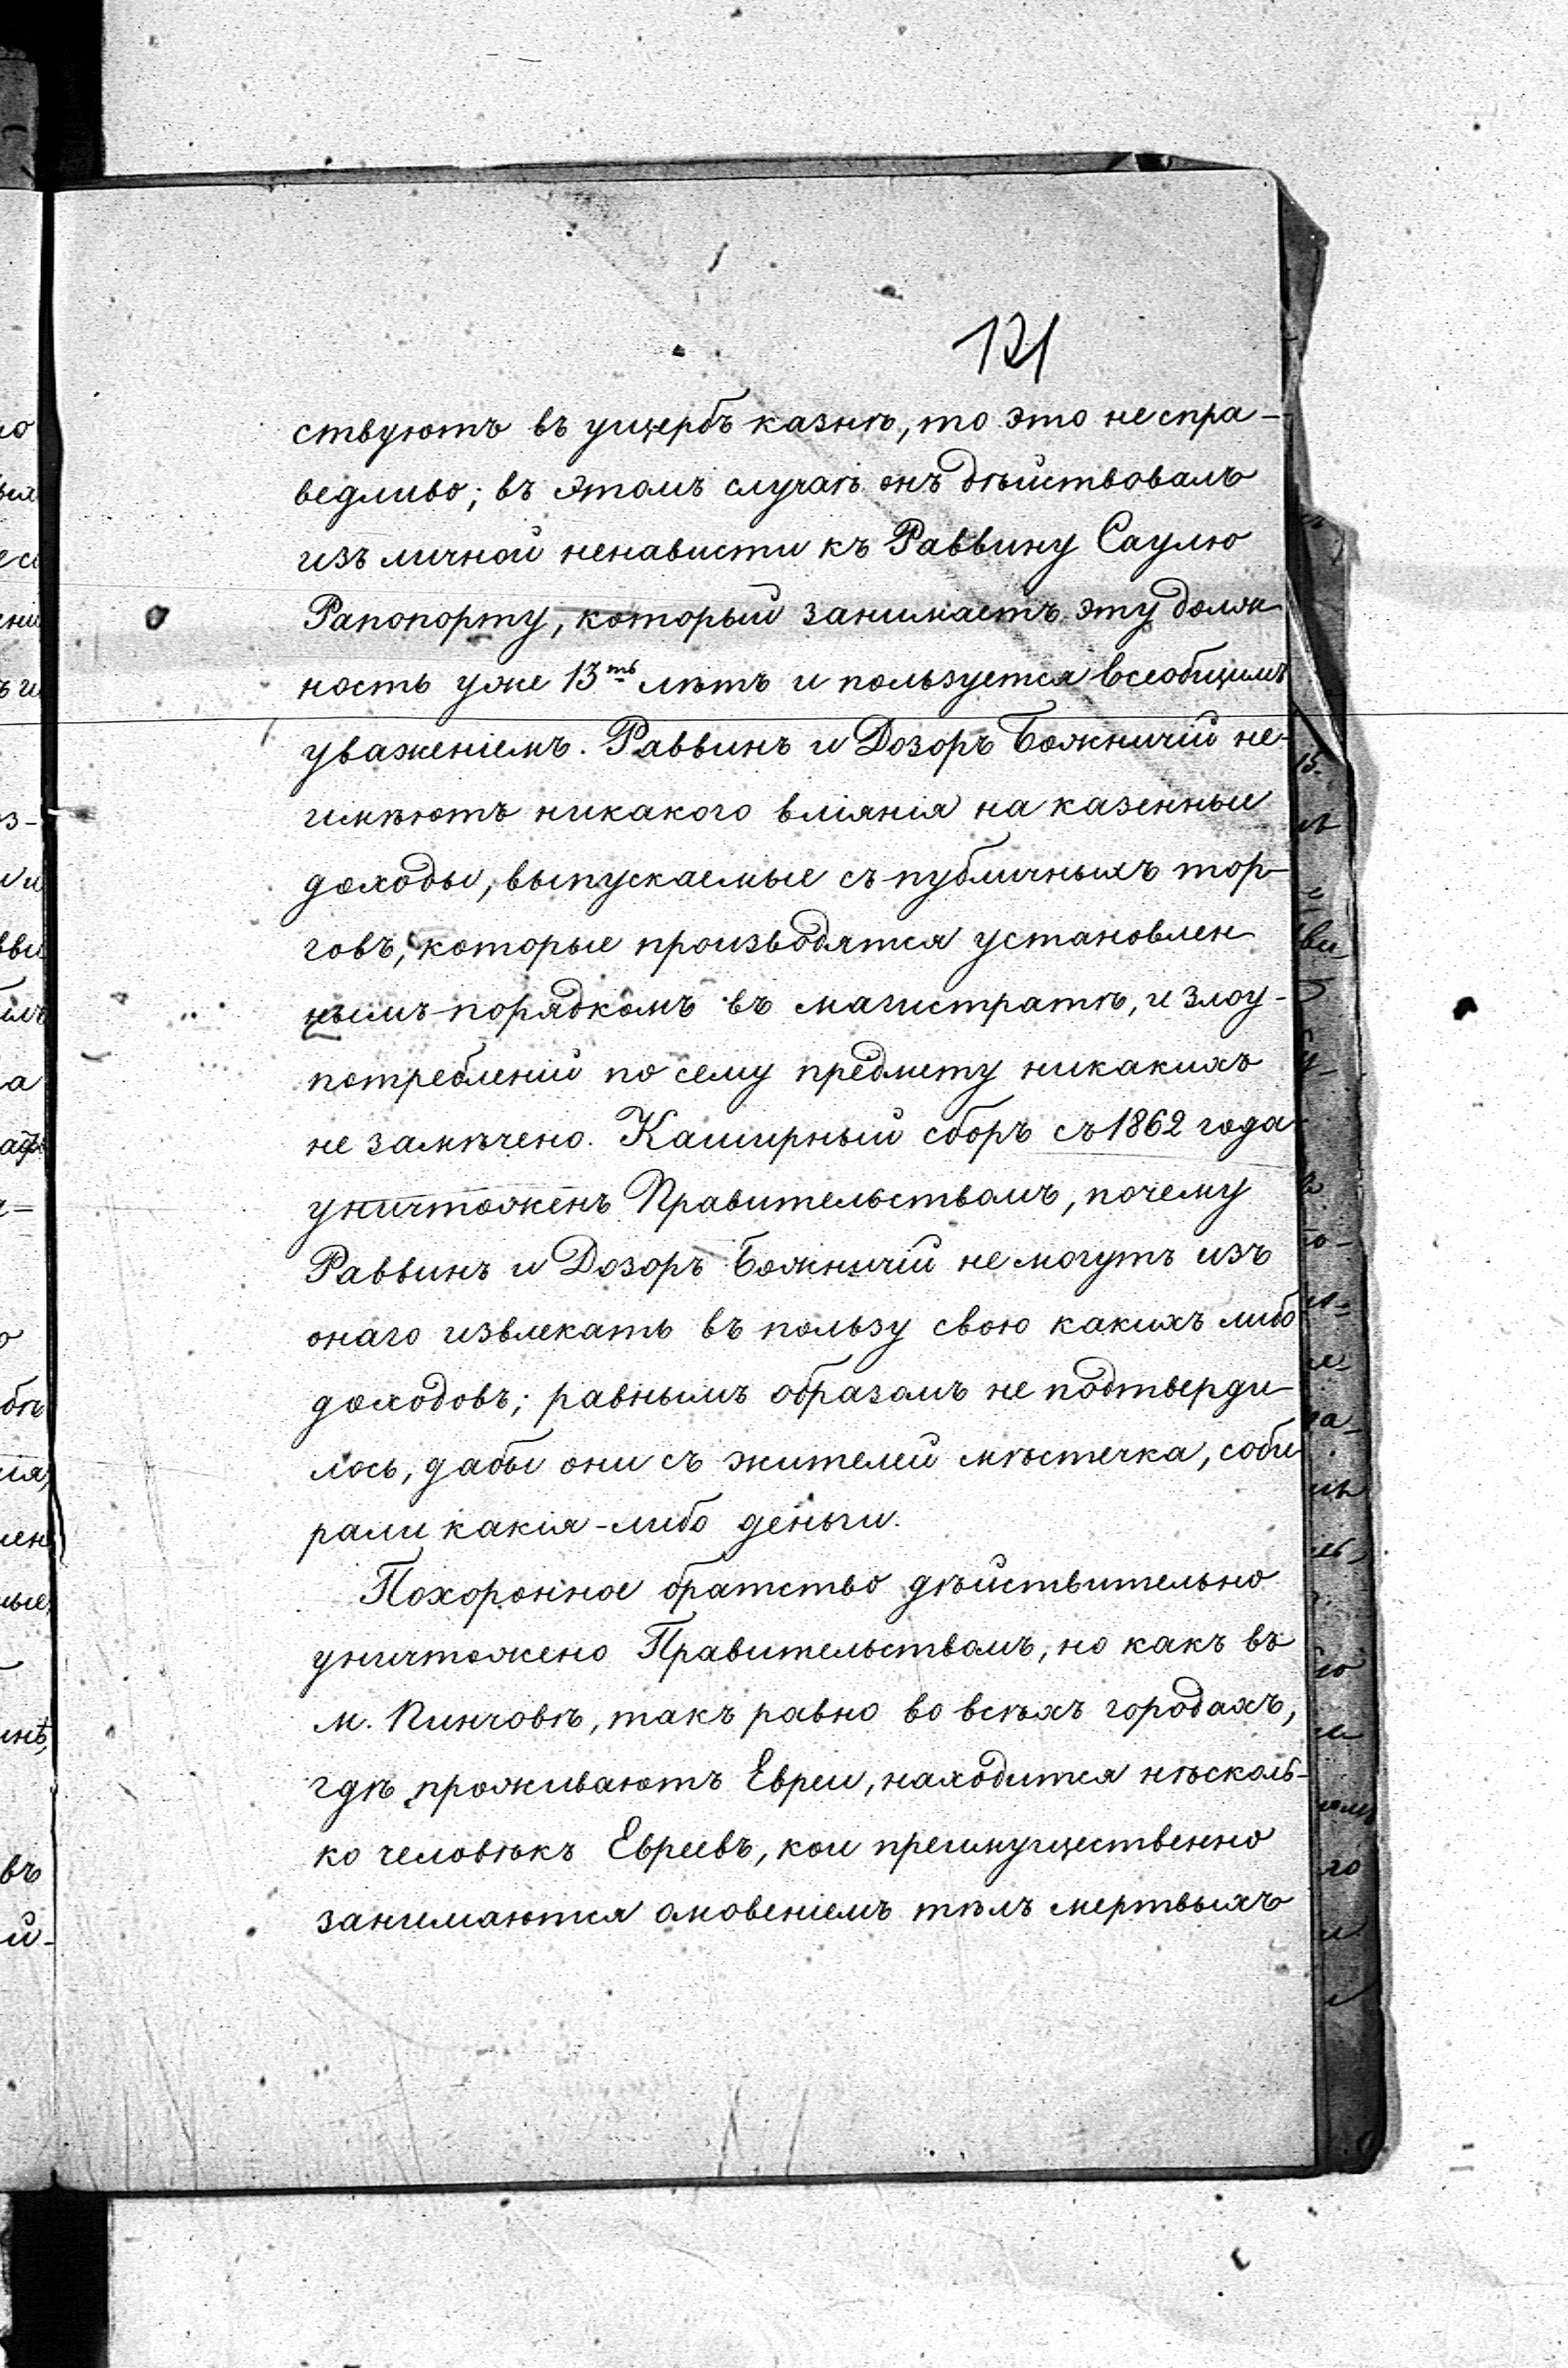 121
ствуютъ въ ущербъ казнѣ, то это неспра-
ведливо; въ этомъ случаѣ онъ дѣйствовалъ
изъ личной ненависти къ Раввину Саулю
Рапопорту, который занимаетъ эту долж-
ность уже 13ть лѣтъ и пользуется всеобщимъ
уваженіемъ. Раввинъ и Дозоръ Божничій не-
имѣютъ никакого вліянія на казенные
доходы, выпускаемые съ публичныхъ тор-
говъ, которые производятся установлен-
нымъ порядкомъ въ магистратѣ, и злоу-
потребленій по сему предмету никакихъ
не замѣчено. Каширный сборъ съ 1862 года
уничтоженъ Правительствомъ, почему
Раввинъ и Дозоръ Божничій не могутъ изъ
онаго извлекать въ пользу свою какихъ либо
доходовъ; равнымъ образомъ не подтверди-
лось, дабы они съ жителей мѣстечка, соби-
рали какія-либо деньги.
Похоронное братство дѣйствительно
уничтожено Правительствомъ, но какъ въ
м. Пинчовѣ, такъ равно во всѣхъ городахъ,
гдѣ проживаютъ Евреи, находится нѣсколь-
ко человѣкъ Евреевъ, кои преимущественно
занимаются омовеніемъ тѣлъ мертвыхъ